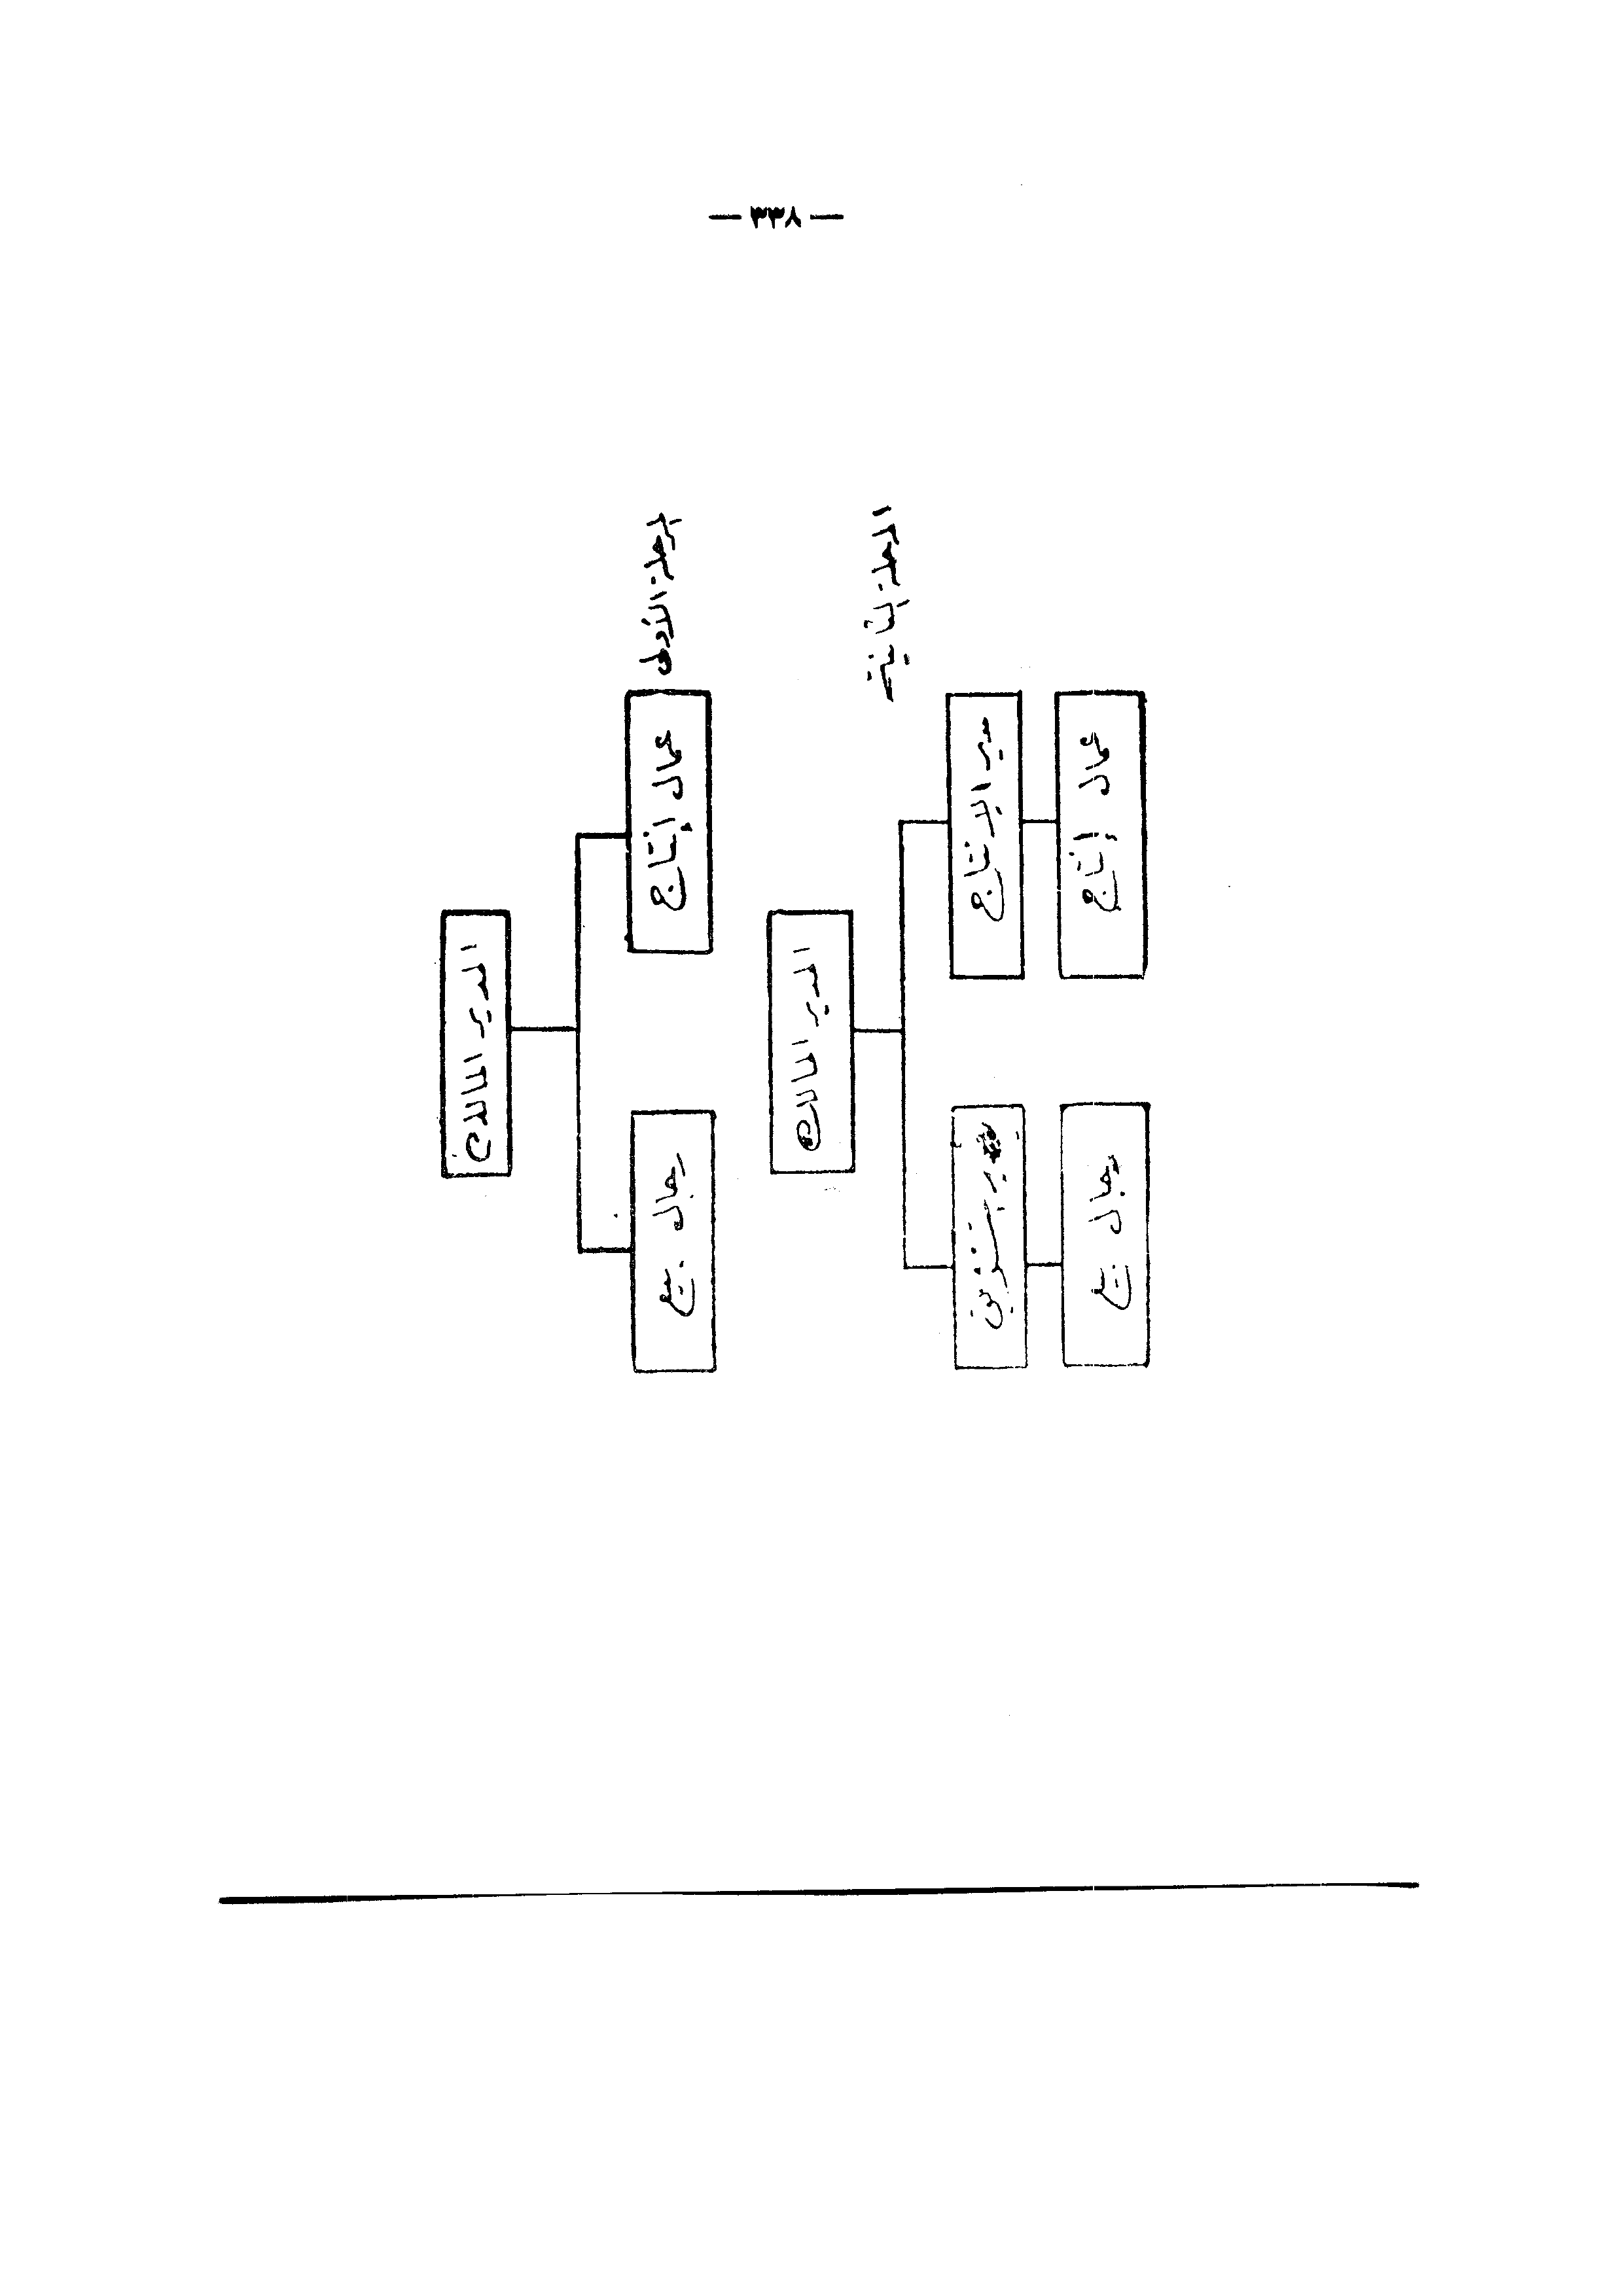 — ٣٣٨ —
المرحلة الأولى
المدير المالك
عمال إنتاج
رجال بيع
المرحلة الثانية
المدير المالك
مدير الإنتاج
مدير التسويق
عمال إنتاج
رجال بيع